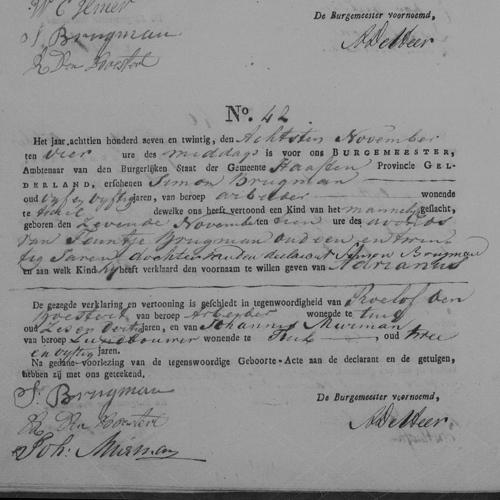 De Burgemeester voornoemd,
S. Brugman
A De Heer
No. 42
Het jaar achttien honderd seven en twintig, den Achtsten November
ten vier ure des middags is voor ons BURGEMEESTER,
Ambtenaar van den Burgerlijken Staat der Gemeente Haaften Provincie GEL-
DERLAND, erschenen Simon Brugman
oud vijf en vijftig jaren, van beroep arbeider wonende
te Tuil dewelke ons heeft vertoond een Kind van het mannelijk geslacht,
geboren den Zevende November ten tien ure des avonds
van Jenntje Brugman oud een en twin
tig Jaren dochter van den declarant Simon Brugman
en aan welk Kind hij heeft verklaard den voornaam te willen geven van Adrianus
De gezegde verklaring en vertooning is geschiedt in tegenwoordigheid van Roelof den
van beroep Arbeyder wonende te Tuil
oud Zes en dertig jaren, en van Johannes
van beroep Landbouwer wonende te Tuil oud twee
en vijftig jaren.
Na gedane voorlezing van de tegenswoordige Geboorte-Acte aan de declarant en de getuigen,
hebben zij met ons geteekend,
S. Brugman
De Burgemeester voornoemd,
A De Heer
Joh: